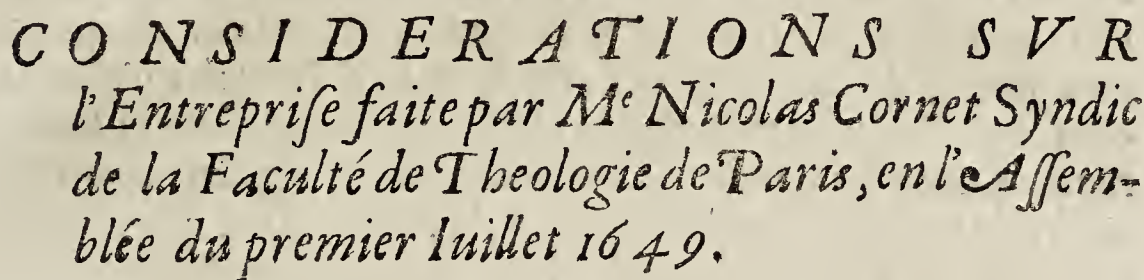 CONSIDERATIONS SVR
l'Entrepriſe faite par Mᵉ Nicolas Cornet Syndic
de la Faculté de Theologie de Paris, en l'Aſſem-
blée du premier Iuillet 1649.